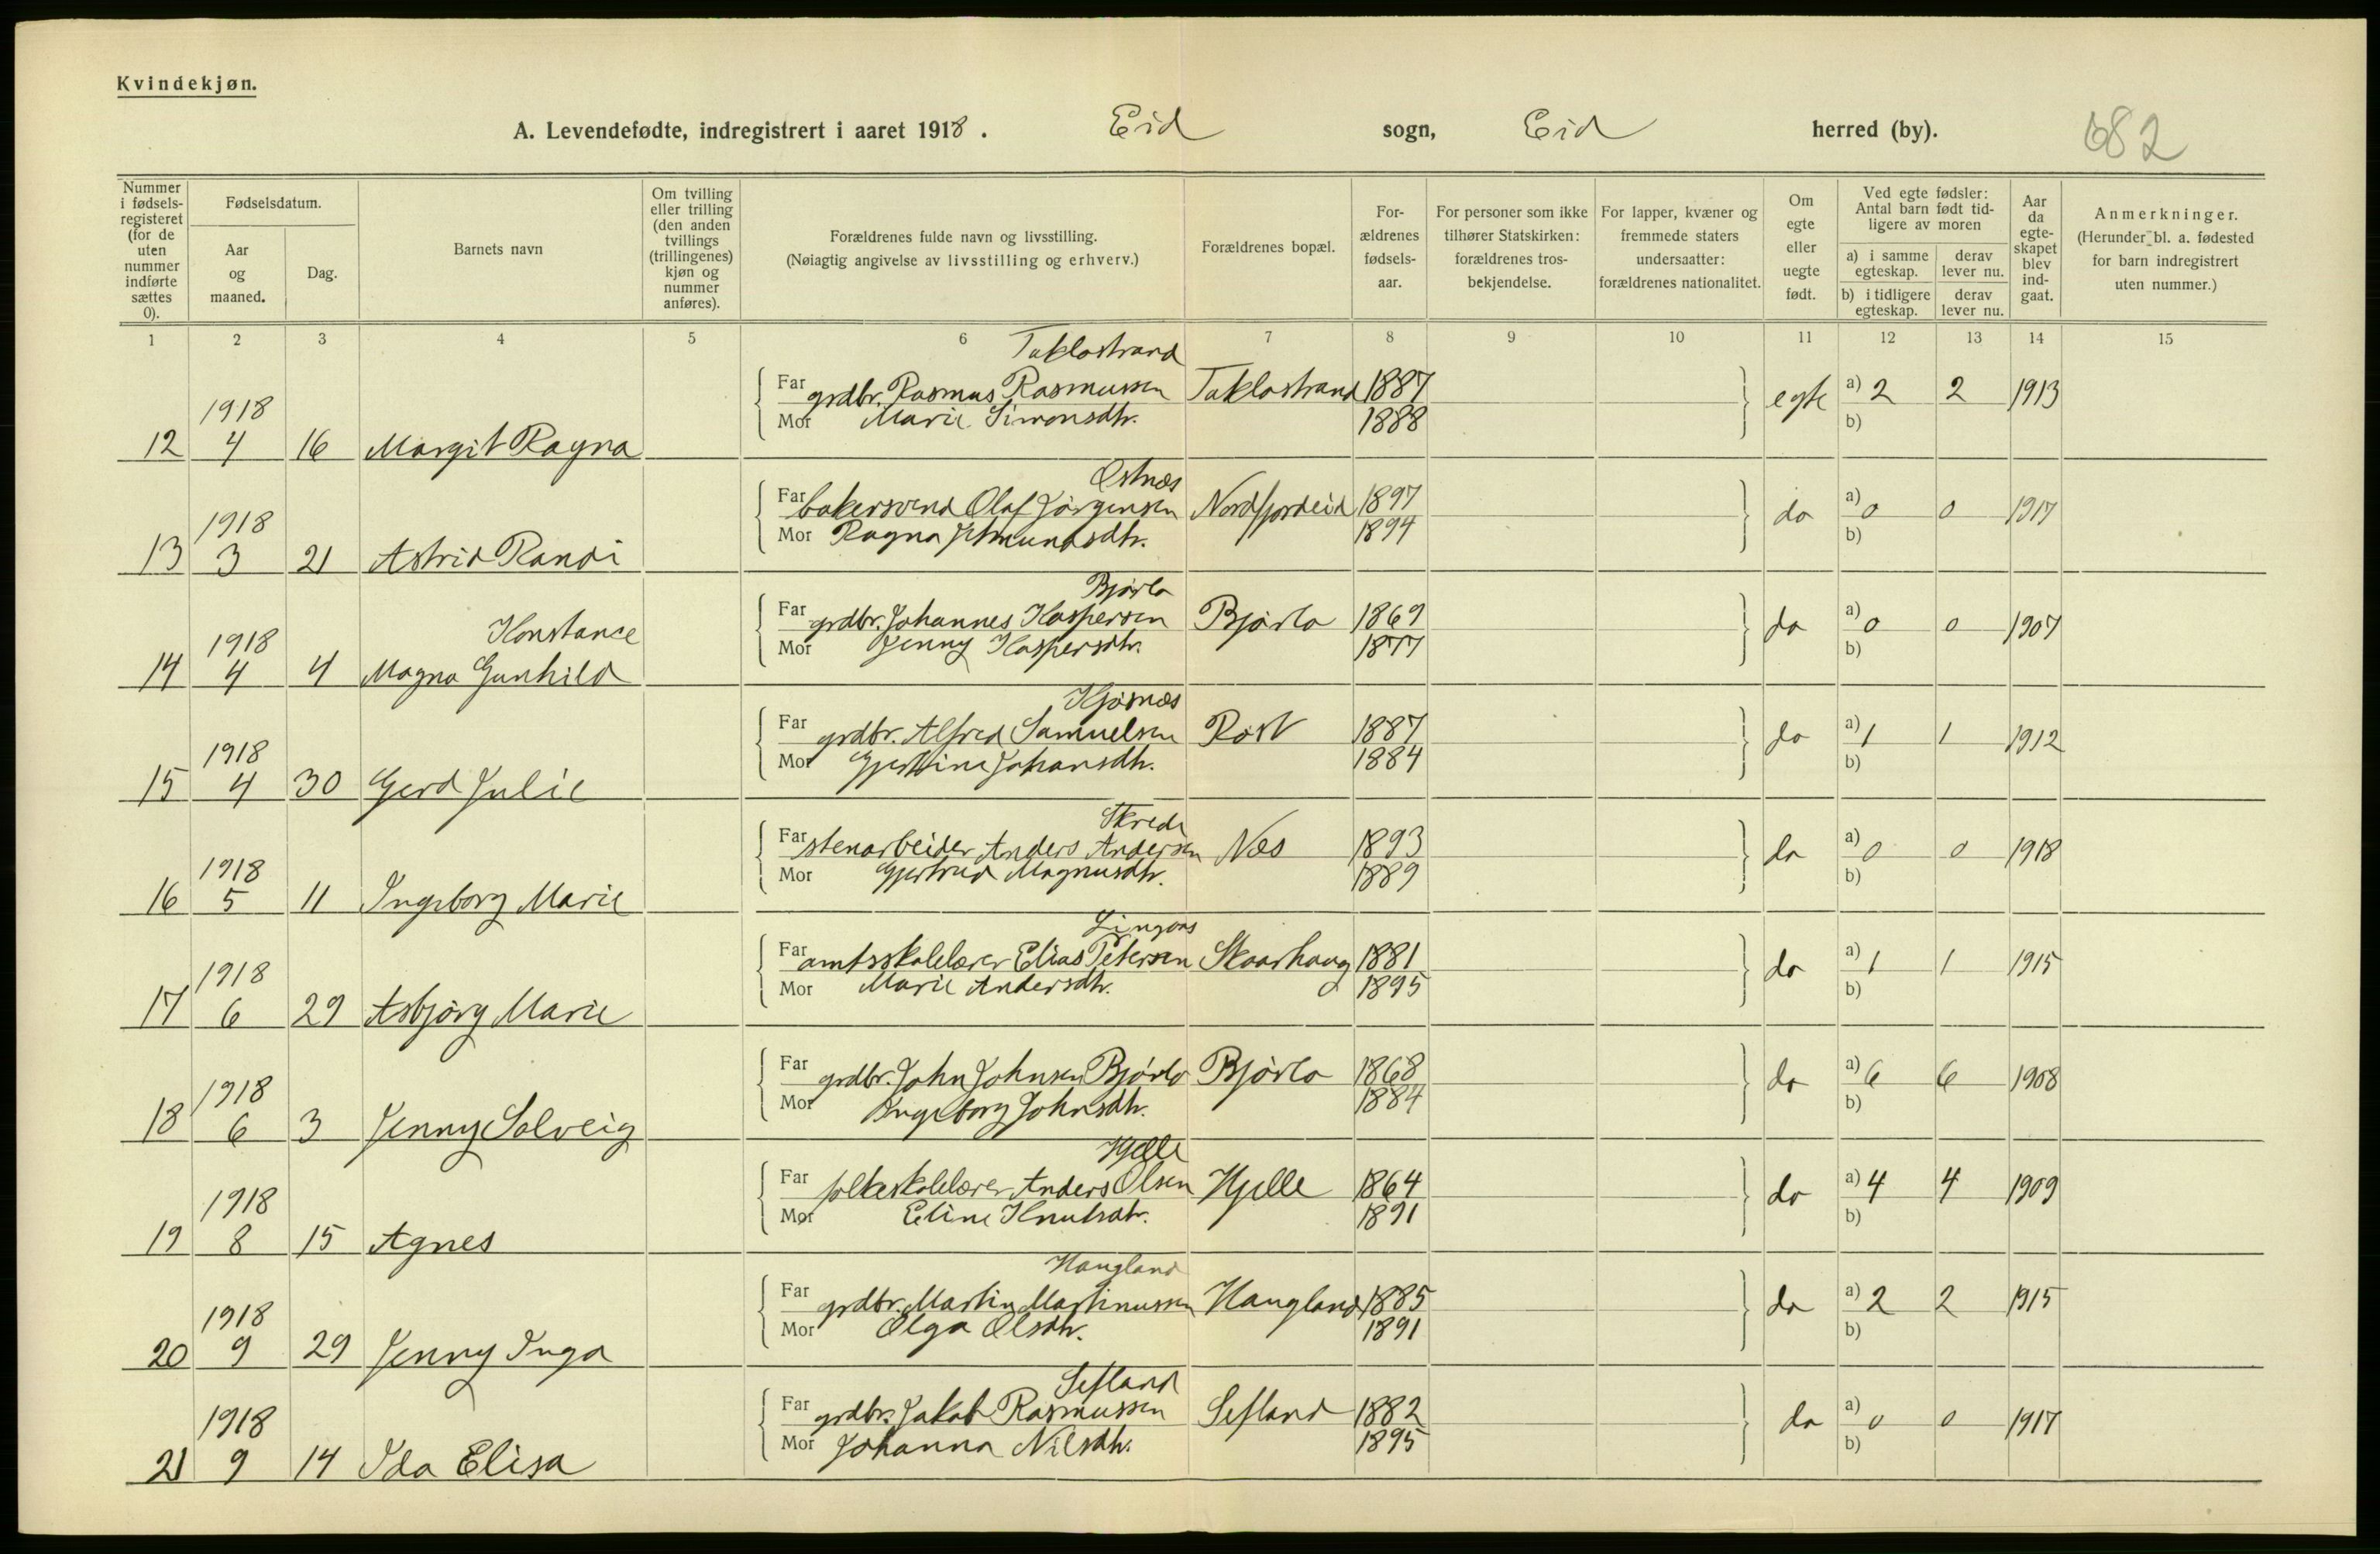 Kvindekjøn.
A. Levendefødte, indregistrert i aaret 1918. Eid sogn, Eid herred (by). 682
Nummer i fødsels-registeret (for de uten nummer indførte sættes 0).
Fødselsdatum.
Aar og maaned.
Dag.
Barnets navn
Om tvilling eller trilling (den anden tvillings (trillingenes) kjøn og nummer anføres).
Forældrenes fulde navn og livsstilling.
(Nøiagtig angivelse av livsstilling og erhverv.)
Forældrenes bopæl.
For-ældrenes fødsels-aar.
For personer som ikke tilhører Statskirken: forældrenes tros-bekjendelse.
For lapper, kvæner og fremmede staters undersaatter: forældrenes nationalitet.
Om egte eller uegte født.
Ved egte fødsler: Antal barn født tid-ligere av moren
a) i samme egteskap. derav lever nu.
b) i tidligere egteskap. derav lever nu.
Aar da egte-skapet blev ind-gaat.
Anmerkninger.
(Herunder bl. a. fødested for barn indregistrert uten nummer.)
1 2 3 4 5 6 7 8 9 10 11 12 13 14 15
Taklostrand
Far grdbr. Rasmus Rasmussen Taklostrand 1887 egte a) 2 2 1913
1918 Mor Marie Simonsdtr. 1888 b)
12 4 16 Margit Ragna
Østnæs
Far bakersvend Olaf Jørgensen Nordfjordeid 1897 do a) 0 0 1917
1918 Mor Ragna Etmundsdtr. 1894 b)
13 3 21 Astrid Randi
Bjørlo
Far grdbr. Johannes Kaspersen Bjørlo 1869 do a) 0 0 1907
1918 Konstance Mor Jenny Kaspersdtr. 1877 b)
14 4 4 Magna Gunhild
Kjøsnæs
Far grdbr. Alfred Samuelsen Røst 1887 do a) 1 1 1912
1918 Mor Gjertine Johansdtr. 1884 b)
15 4 30 Gerd Julie
Skrede
Far stenarbeider Anders Andersen Næs 1893 do a) 0 0 1918
1918 Mor Gjertrud Magnusdtr. 1889 b)
16 5 11 Ingeborg Marie
Lingaas
Far amtsskolelærer Elias Petersen Skaarhaug 1881 do a) 1 1 1915
1918 Mor Marie Andersdtr. 1895 b)
17 6 29 Asbjørg Marie
Far grdbr. John Johnsen Bjørlo Bjørlo 1868 do a) 6 6 1908
1918 Mor Ingeborg Johnsdtr. 1884 b)
18 6 3 Jenny Solveig
Hjelle
Far folkeskolelærer Anders Olsen Hjelle 1864 do a) 4 4 1909
1918 Mor Eline Knutsdtr. 1891 b)
19 8 15 Agnes
Haugland
Far grdbr. Martin Martinussen Haugland 1885 do a) 2 2 1915
1918 Mor Olga Olsdtr. 1891 b)
20 9 29 Jenny Inga
Sefland
Far grdbr. Jakob Rasmussen Sefland 1882 do a) 0 0 1917
1918 Mor Johanna Nilsdtr. 1895 b)
21 9 14 Ida Elisa